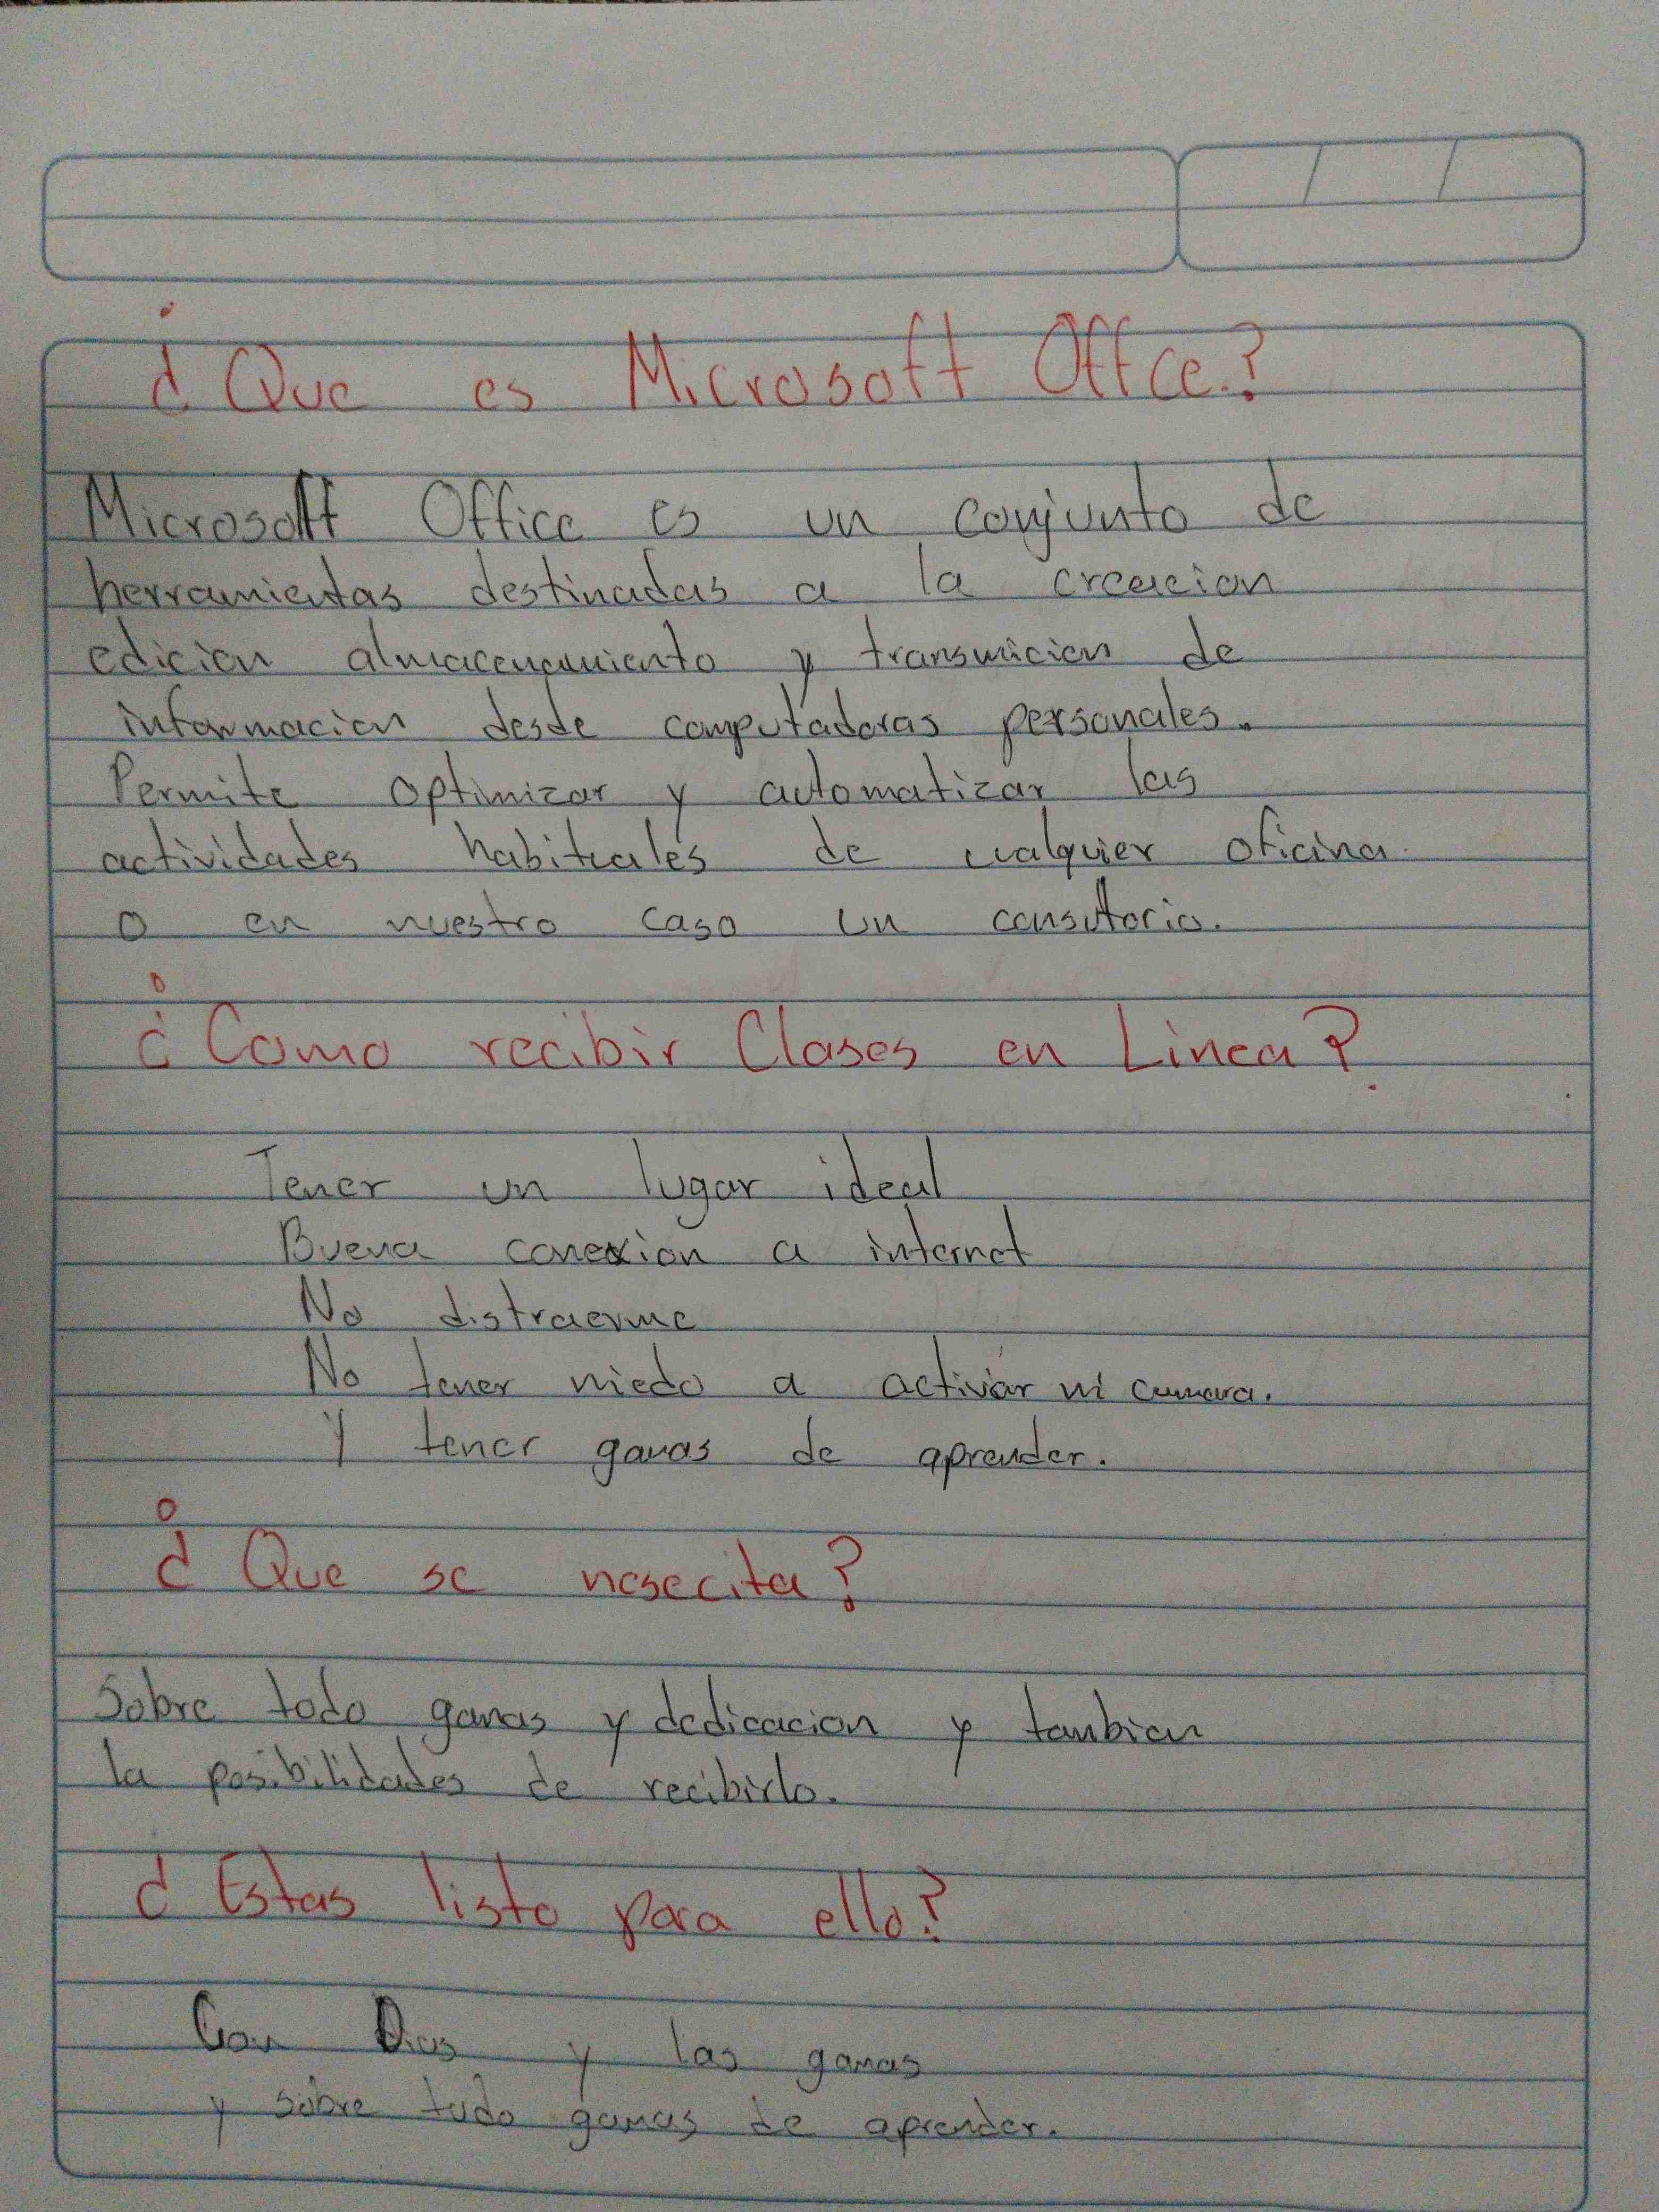 ¿Que es Microsoft Offce.?
Microsoft Office es un conjunto de
herramientas destinadas a la creacion
edicion almacenamiento y transmicion de
informacion desde computadoras personales.
Permite optimizar y automatizar las
actividades habituales de cualquier oficina
o en nuestro caso un consultorio.
¿Como recibir Clases en Linea?
Tener un lugar ideal
Buena conexion a internet
No distraerme
No tener miedo a activar mi camara.
Y tener ganas de aprender.
¿Que se nesecita?
Sobre todo ganas y dedicacion y tambien
la posibilidades de recibirlo.
¿Estas listo para ello?
Con Dios y las ganas
y sobre todo ganas de aprender.